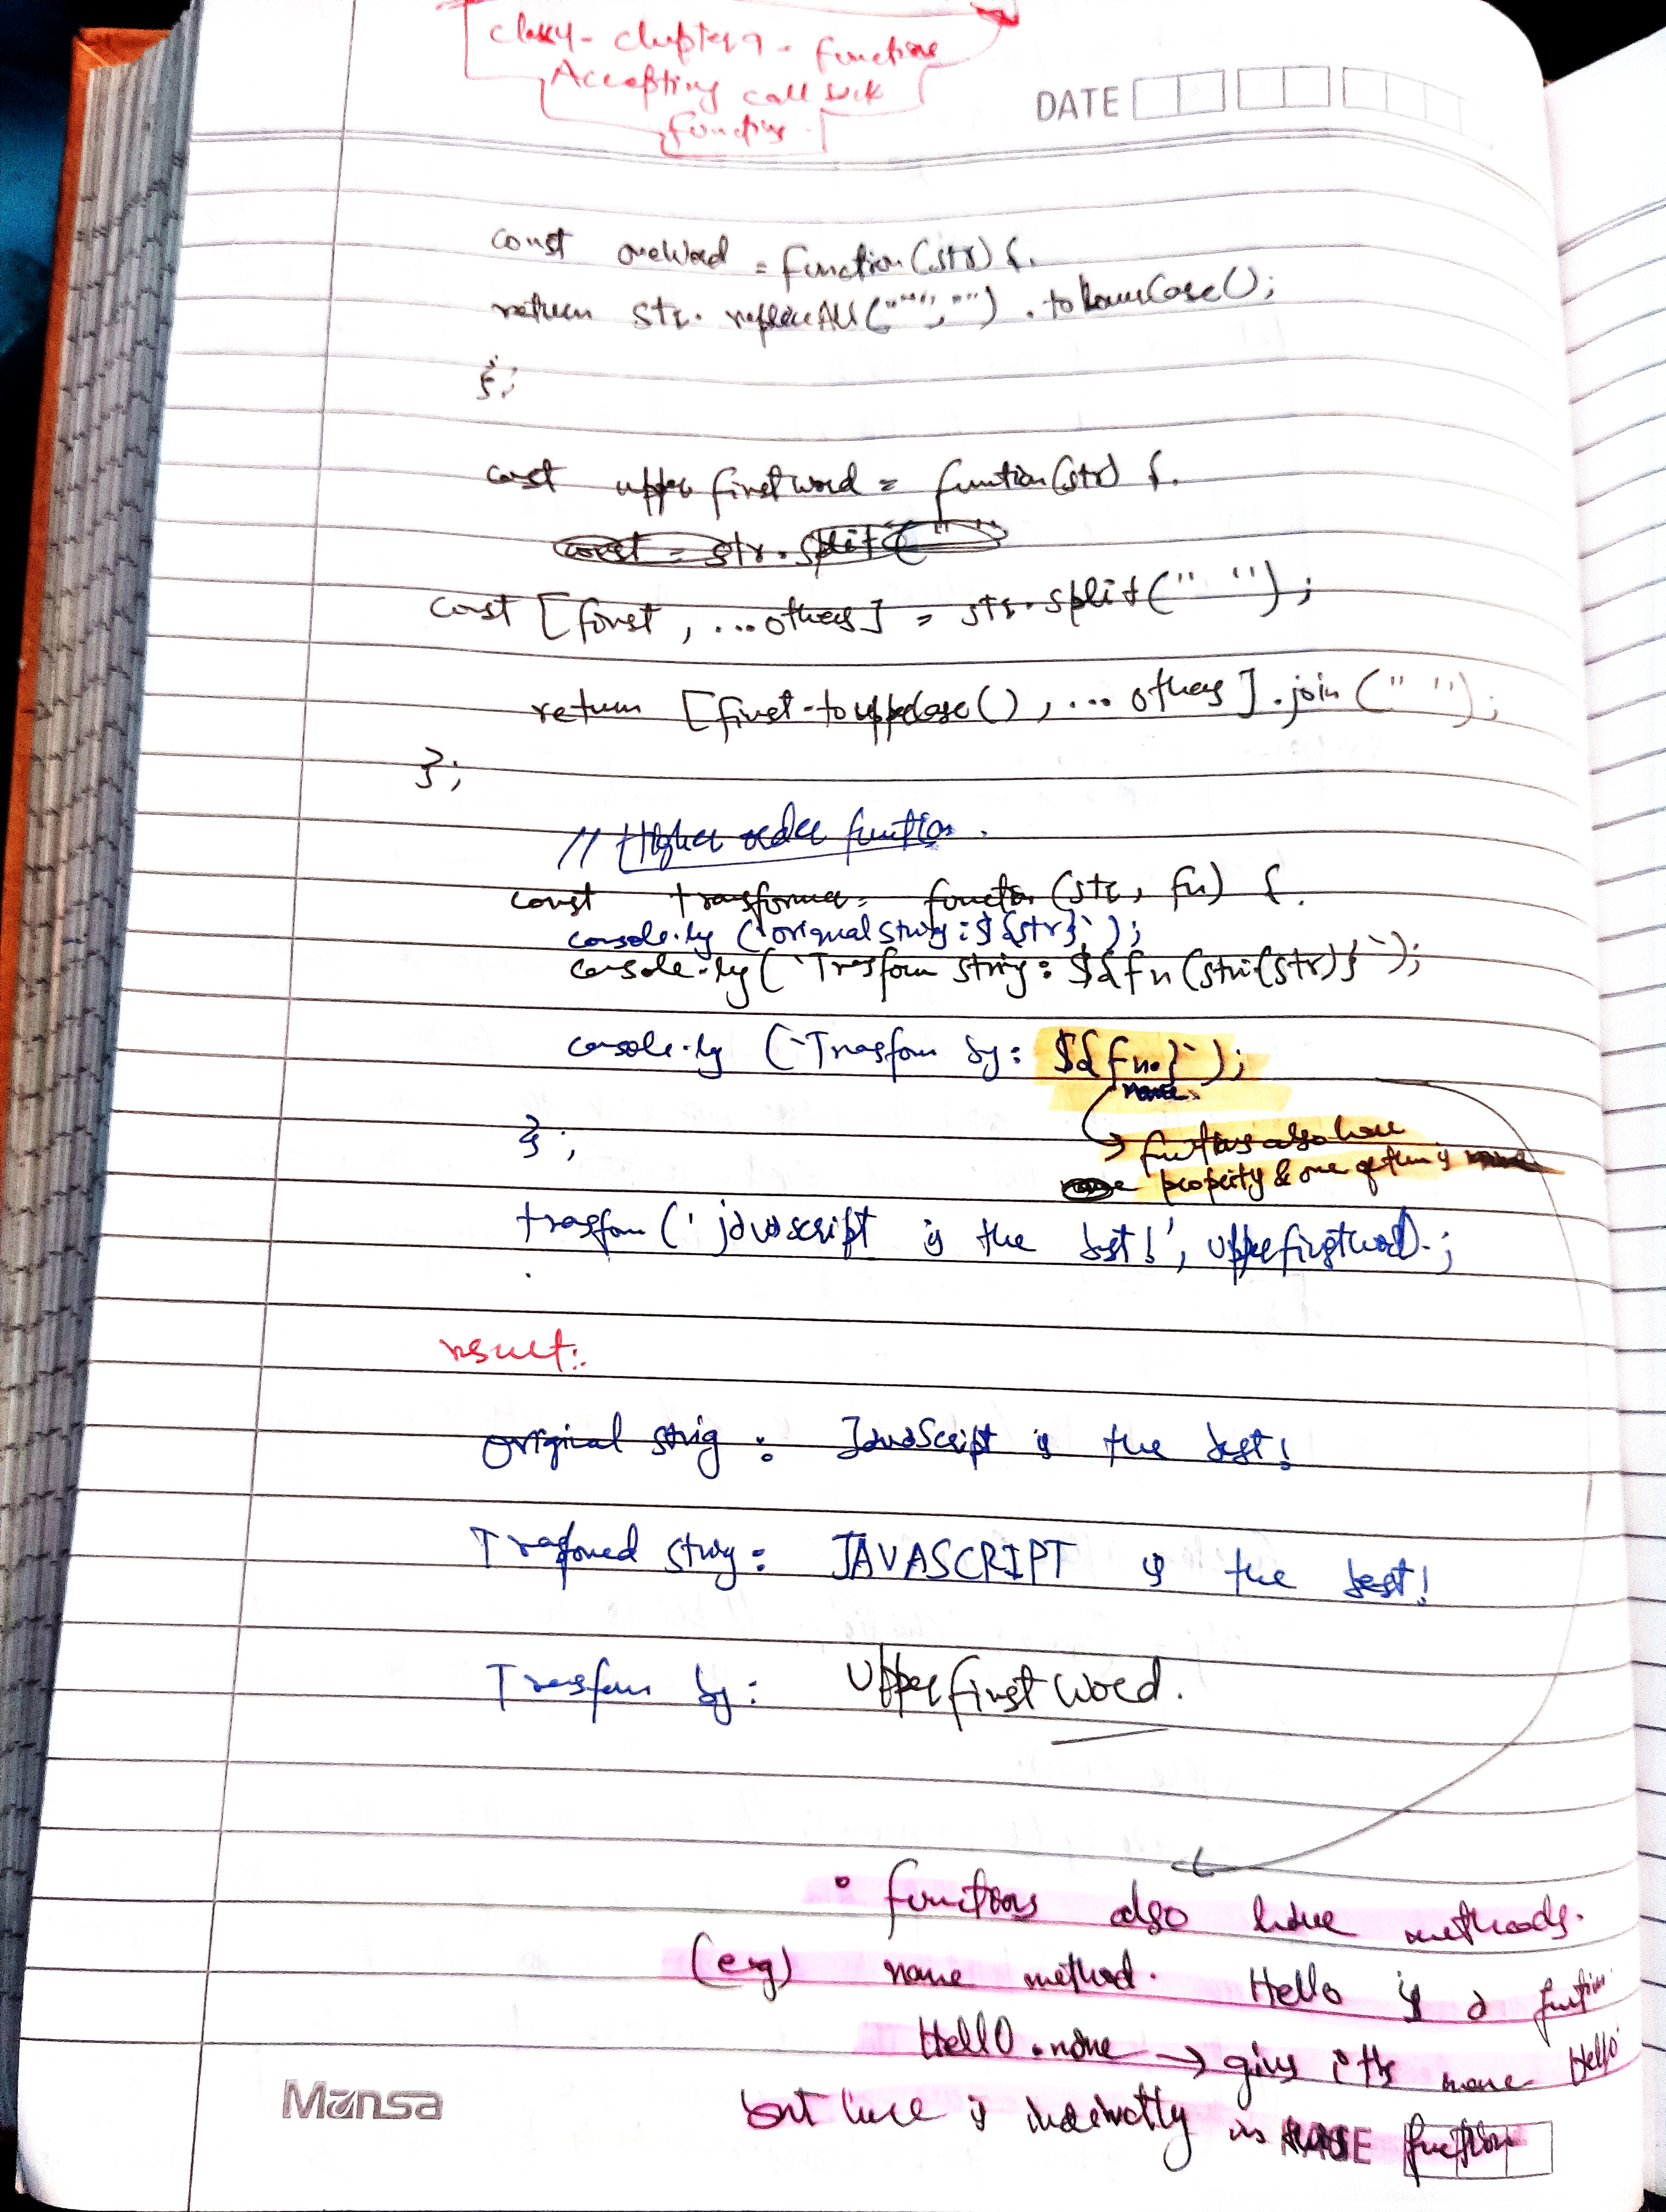 class 4 - chapter 9 - functions
Accepting call back
functions.
DATE
const oneWord = function(str) {.
return str. replaceAll(" ", "") . toLowerCase();
};
const upper first word = function(str) {.
const = str. split(" "
const [first, ... others] = str. split(" ");
return [first. to uppecase(), ... others]. join(" ");
};
// Higher order function.
const transformer = function(str, fn) {.
console.log (`original string: ${str}`);
console.log(`Trasform string: ${fn(stri(str)}`);
console.log (`Trasform by: ${fn.}`);
name.
};
→ functions also have
property & one of them is name
trasform ('javascript is the best!', upperfirstword).;
result:
Original string : JavaScript is the best!
Trasformed string: JAVASCRIPT is the best!
Trasform by: Upperfirstword.
• functions also have methods.
(eg) name method. Hello is a function
Hello.name → gives its name Hello
but here is indirectly in function
Mansa